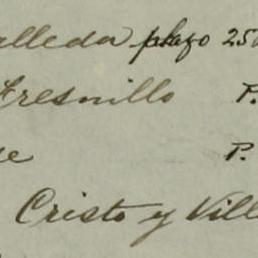 alleda plazo 250
Fresnillo P.
se P.
Cristo y Ville